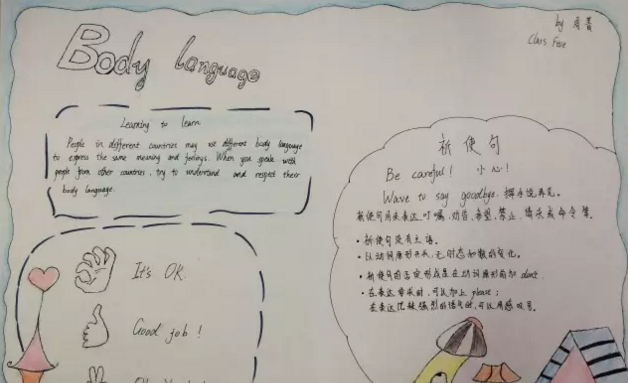 Body language
by
Class Five
Learning to learn
People in different countries may use different body language
to express the same meaning and feelings. When you speak with
people from other countries, try to understand and respect their
body language.
It's OK.
Good job !
祈使句
Be careful! 小心!
Wave to say goodbye. 挥手说再见。
祈使句用来表达叮嘱、劝告、希望、禁止、请求或命令等。
·祈使句没有主语。
·以动词原形开头,无时态和数的变化。
·祈使句的否定形式是在动词原形前加 don't.
·在表达请求时,可以加上 please;
在表达比较强烈的语气时,可以用感叹号。